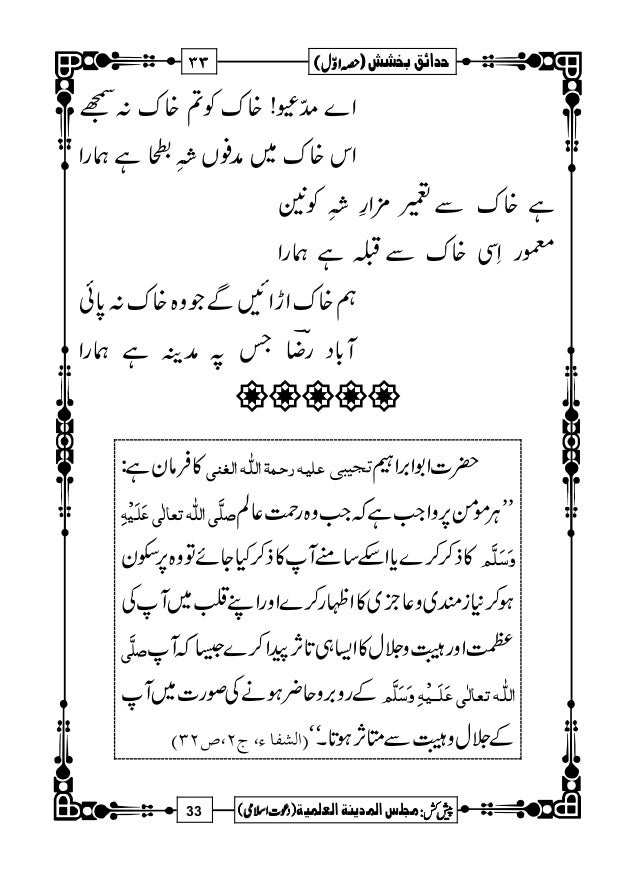 حدائقِ بخشش (حصہ اوّل)
۳۳
اے مدّعیو! خاک کو تم خاک نہ سمجھے
اس خاک میں مدفوں شہِ بطحا ہے ہمارا
ہے خاک سے تعمیر مزارِ شہِ کونین
معمور اِسی خاک سے قبلہ ہے ہمارا
ہم خاک اڑائیں گے جو وہ خاک نہ پائی
آباد رضؔا جس پہ مدینہ ہے ہمارا
حضرت ابو ابراہیم تجیبی علیہ رحمۃ اللہ الغنی کا فرمان ہے:
’’ہر مؤمن پر واجب ہے کہ جب وہ رحمت عالم صلَّی اللّٰہ تعالٰی عَلَیْہِ
وَسَلَّم کا ذکر کرے یا اسکے سامنے آپ کا ذکر کیا جائے تو وہ پر سکون
ہو کر نیاز مندی و عاجزی کا اظہار کرے اور اپنے قلب میں آپ کی
عظمت اور ہیبت و جلال کا ایسا ہی تاثر پیدا کرے جیسا کہ آپ صلَّی
اللّٰہ تعالٰی عَلَیْہِ وَسَلَّم کے روبرو حاضر ہونے کی صورت میں آپ
کے جلال و ہیبت سے متاثر ہوتا۔‘‘ (الشفاء، ج۲، ص۳۲)
پیش کش: مجلس المدینۃ العلمیۃ (دعوتِ اسلامی)
33